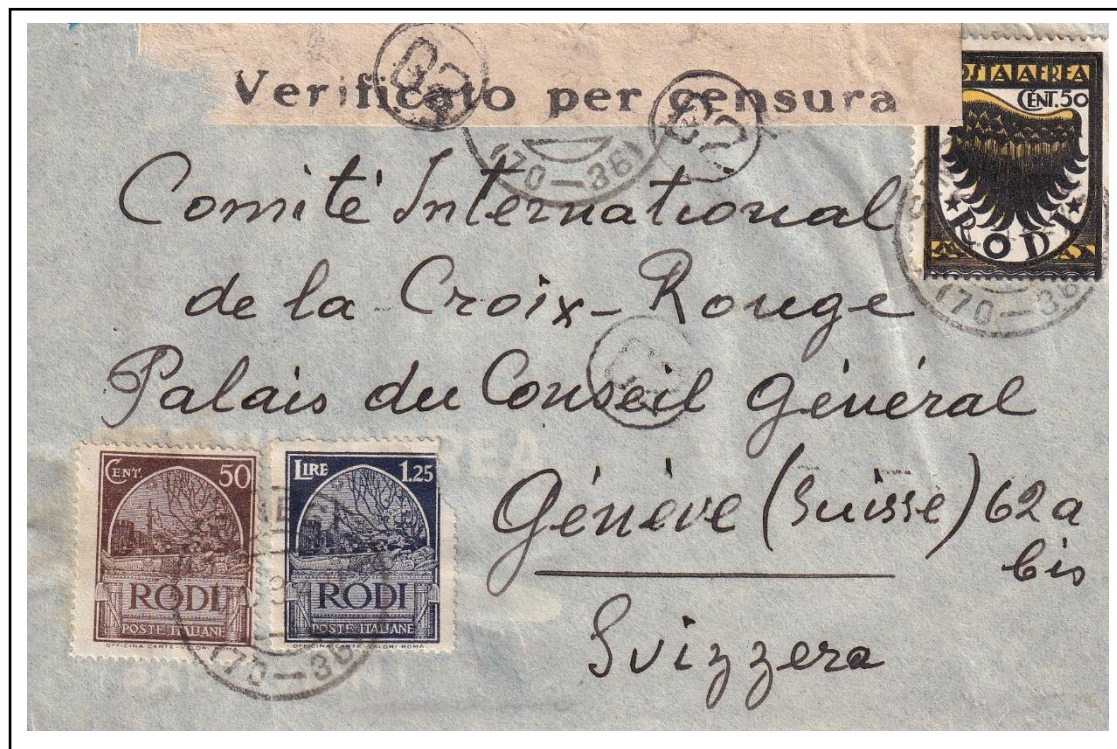 Verificato per censura
POSTA AEREA
CENT. 50
RODI
(70-36)
(70-36)
Comité International
de la Croix-Rouge
Palais du Conseil Général
Génève (Suisse) 62a
bis
Svizzera
CENT. 50
RODI
POSTE ITALIANE
LIRE 1.25
RODI
POSTE ITALIANE
OFFICINA CARTE-VALORI ROMA
(70-36)